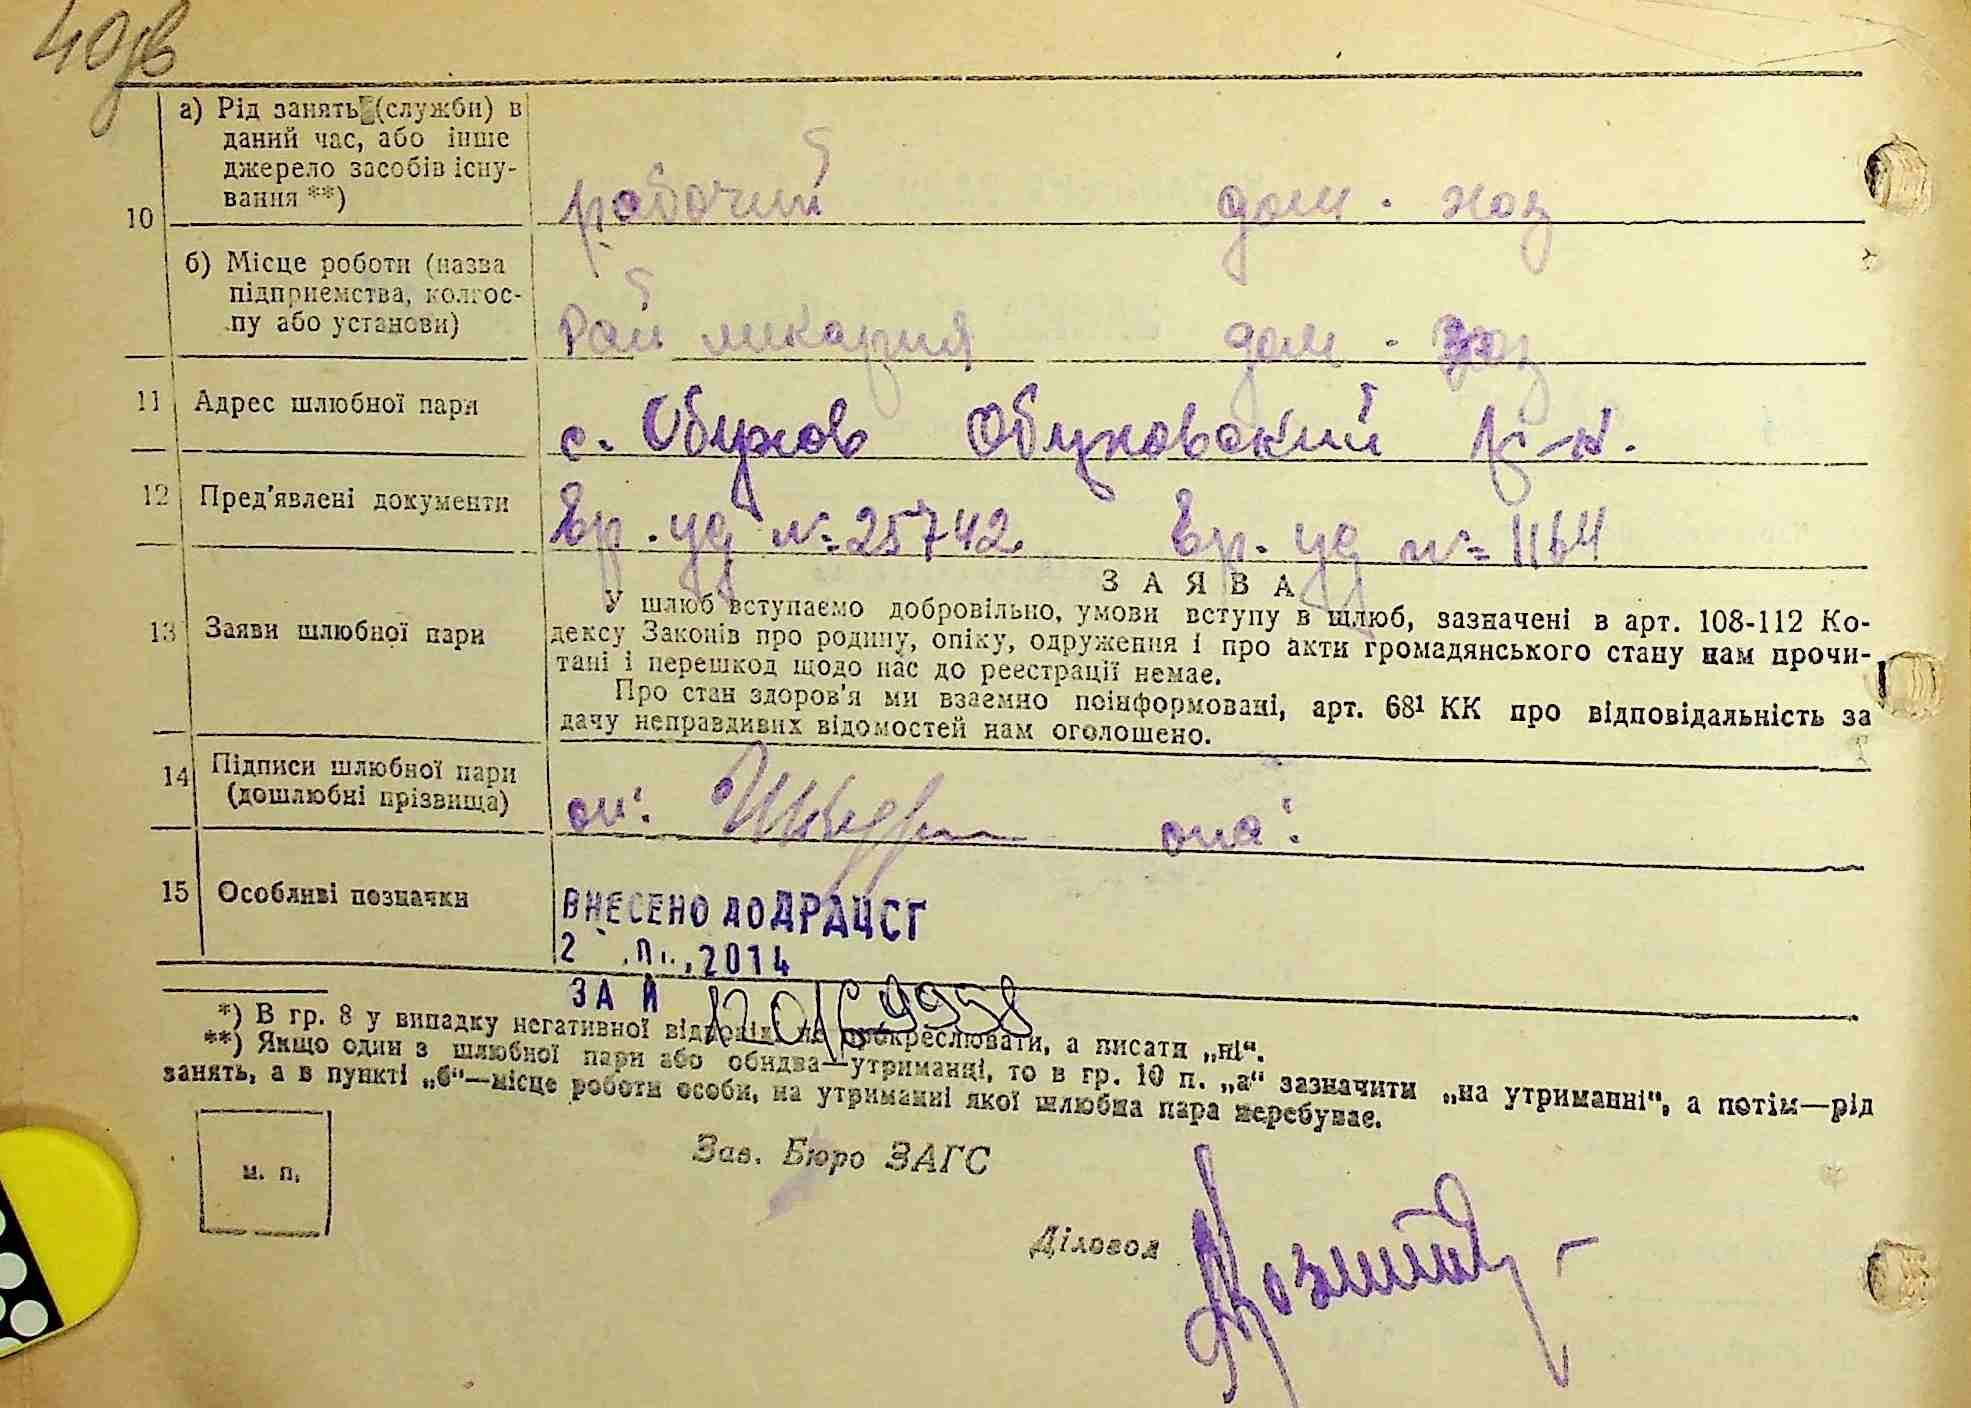 40зв
а) Рід занять (служби) в
даний час, або інше
джерело засобів існу-
вання **)
10
рабочий дом. хоз
б) Місце роботи (назва
підприємства, колгос-
пу або установи)
Рай ликарня дом. хоз
11 Адрес шлюбної пари
с. Обухов Обуховский р-н.
12 Пред'явлені документи
Вр. уд №25742. Вр. уд №1164
ЗАЯВА
13 Заяви шлюбної пари
У шлюб вступаємо добровільно, умови вступу в шлюб, зазначені в арт. 108-112 Ко-
дексу Законів про родину, опіку, одруження і про акти громадянського стану нам прочи-
тані і перешкод щодо нас до реестрації немає.
Про стан здоров'я ми взаємно поінформовані, арт. 68¹ КК про відповідальність за
дачу неправдивих відомостей нам оголошено.
14 Підписи шлюбної пари
(дошлюбні прізвища)
он: она:
15 Особливі позначки
ВНЕСЕНО ДО ДРАЦСГ
2 2014
ЗА №
*) В гр. 8 у випадку негативної відповіді не прокреслювати, а писати „ні“.
**) Якщо один з шлюбної пари або обидва—утриманці, то в гр. 10 п. „а“ зазначити „на утриманні“, а потім—рід
занять, а в пункті „б“—місце роботи особи, на утриманні якої шлюбна пара перебуває.
м. п.
Зав. Бюро ЗАГС
Діловод